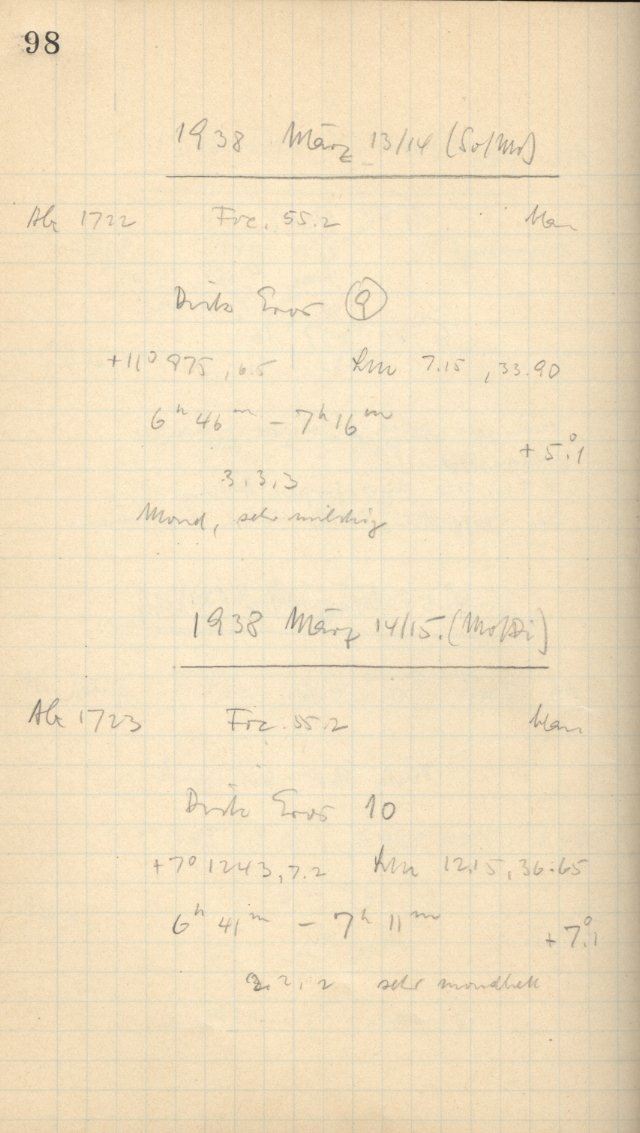 98
1938 März 13/14 (So/Mo)
1722 Foc. 55.2 blau
Eros 9
+11° 975, 6.5 7.15, 33.90
6h 46m – 7h 16m
+5°.1
3, 3, 3
Mond, sehr milchig
1938 März 14/15. (Mo/Di)
1723 Foc. 55.2 blau
Eros 10
+7° 1243, 7.2 12.15, 36.65
6h 41m – 7h 11m
+7°.1
2, 2, 2 sehr mondhell